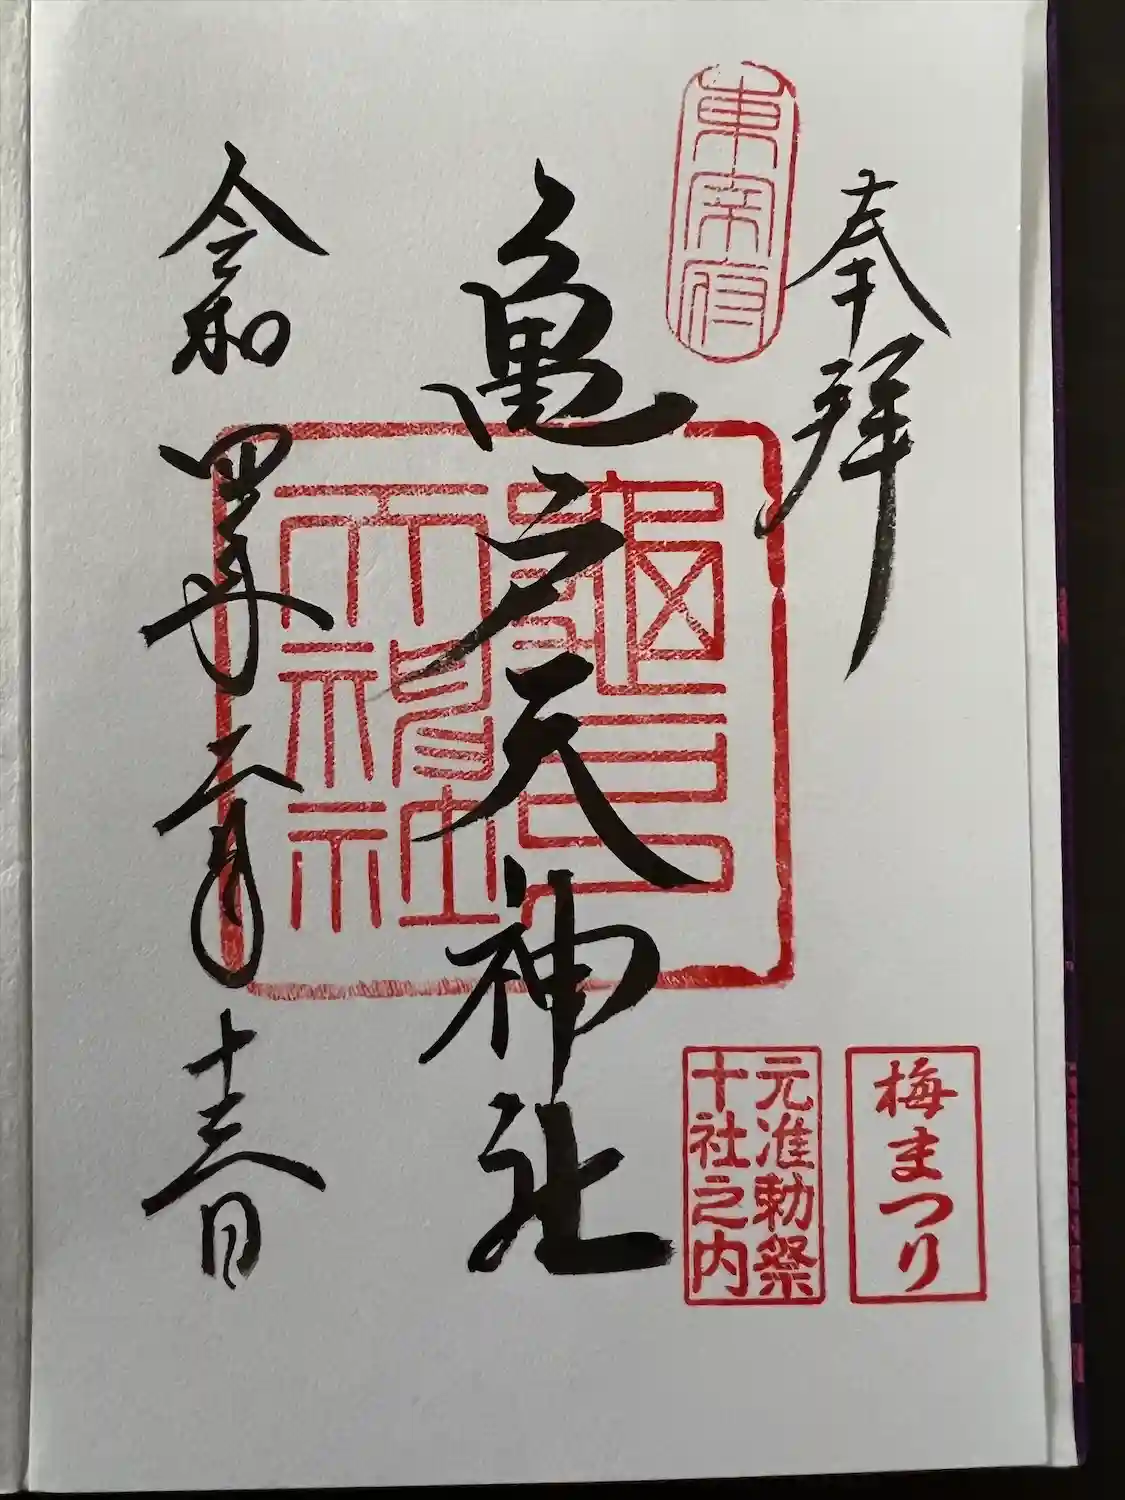 奉拝
東宰府
梅まつり
元准勅祭
十社之内
亀戸天神社
亀戸
天神社
令和四年二月十三日